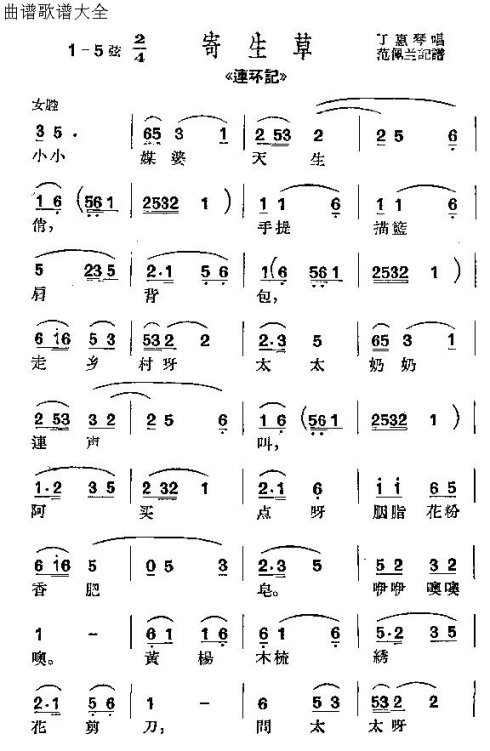 曲谱歌谱大全
1-5弦 2/4 寄生草 丁惠琴唱
《連环記》 范佩兰記譜
女腔
3 5 · | 65 3 1 | 2 53 2 | 2 5 6 |
小小 媒婆 天生
1 6 (561 | 2532 1 ) | 1 1 6 | 1 1 6 |
俏, 手提 描籃
5 23 5 | 2·1 5 6 | 1(6 561 | 2532 1 ) |
肩 背 包,
6 16 5 3 | 53 2 2 | 2·3 5 | 65 3 1 |
走 乡 村呀 太太 奶奶
2 53 3 2 | 2 5 6 | 1 6 (561 | 2532 1 ) |
連声 叫,
1·2 3 5 | 2 32 1 | 2·1 6 | i i 6 5 |
阿 买 点呀 胭脂花粉
6 16 5 | 0 5 3 | 2·3 5 | 5 2 3 2 |
香肥 皂。 咿咿噢噢
1 - | 6 1 1 6 | 6 1 6 | 5·2 3 5 |
噢。 黃楊 木梳 綉
2·1 5 6 | 1 - | 6 5 3 | 53 2 2 |
花剪 刀, 問太 太呀